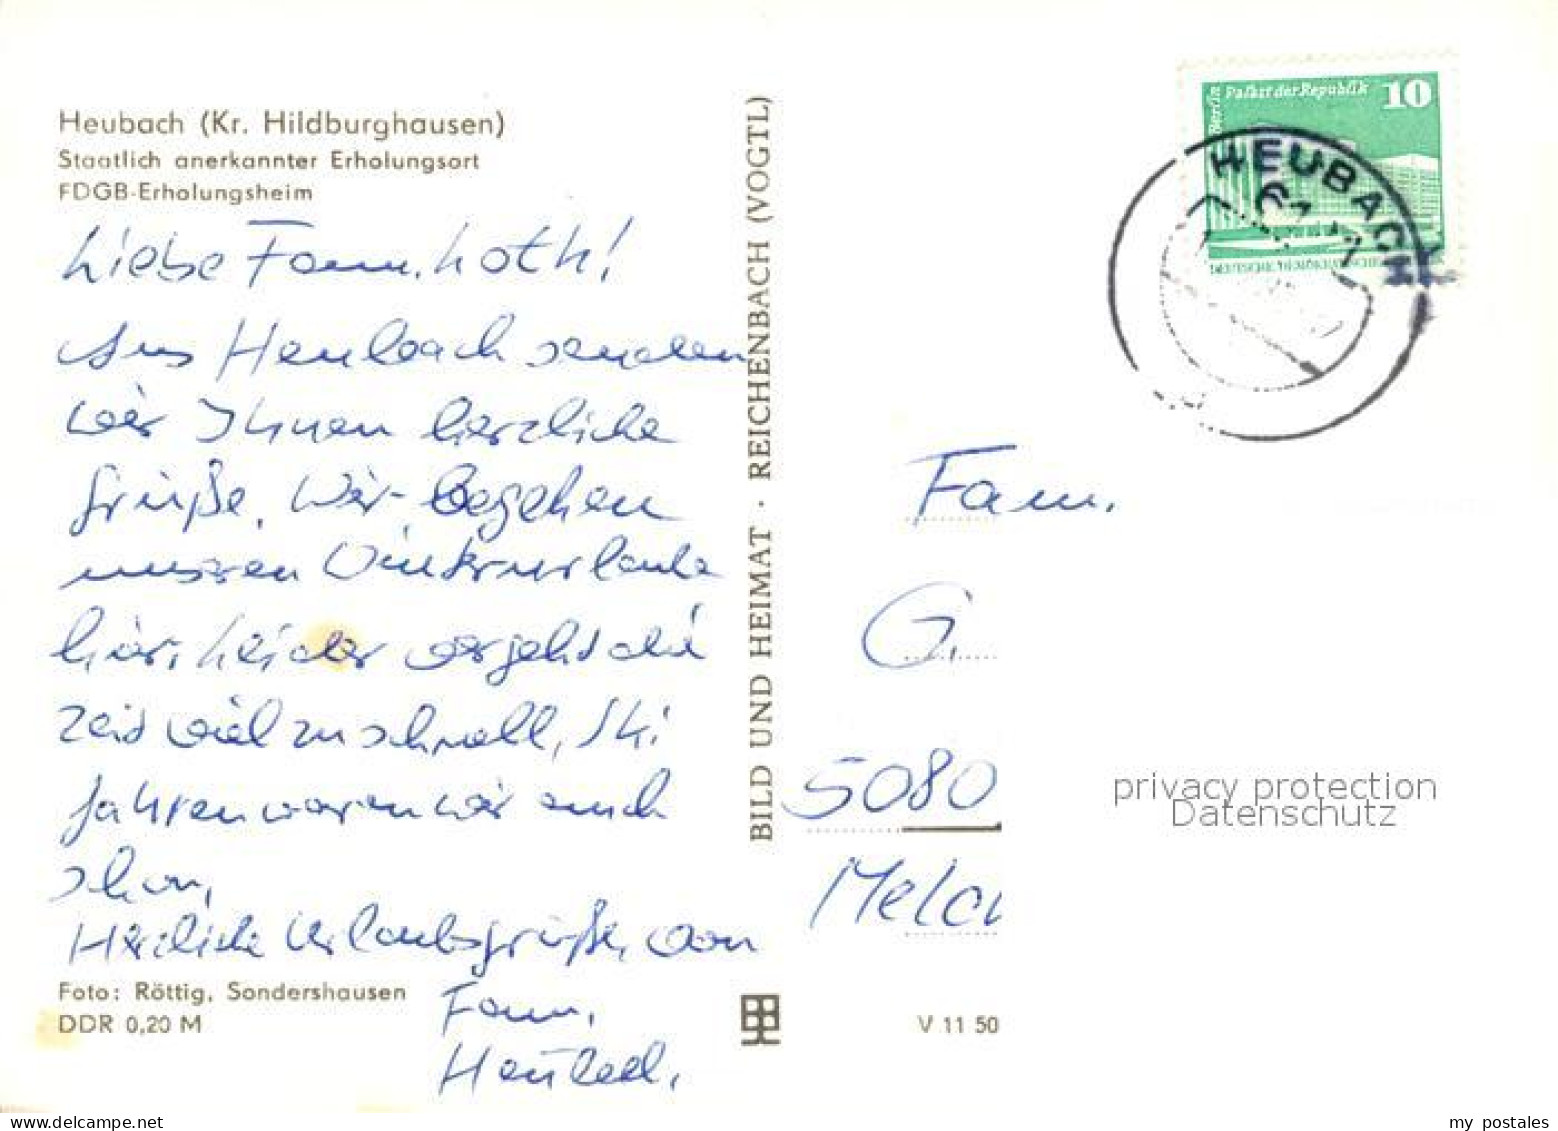 Heubach (Kr. Hildburghausen)
Staatlich anerkannter Erholungsort
FDGB-Erholungsheim
Liebe Fam.
Aus Heubach senden
wir Ihnen herzliche
Grüße. Wir begehen
unseren Winterurlaub
hier. Leider vergeht die
Zeit viel zu schnell, Ski
fahren waren wir auch
schon,
Herzliche Urlaubsgrüße, von
Fam.
Foto: Röttig, Sondershausen
DDR 0,20 M
BILD UND HEIMAT · REICHENBACH (VOGTL)
V 11 50
Berlin Palast der Republik 10
HEUBACH
Fam.
G.
5080
Melch
privacy protection
Datenschutz
my postales